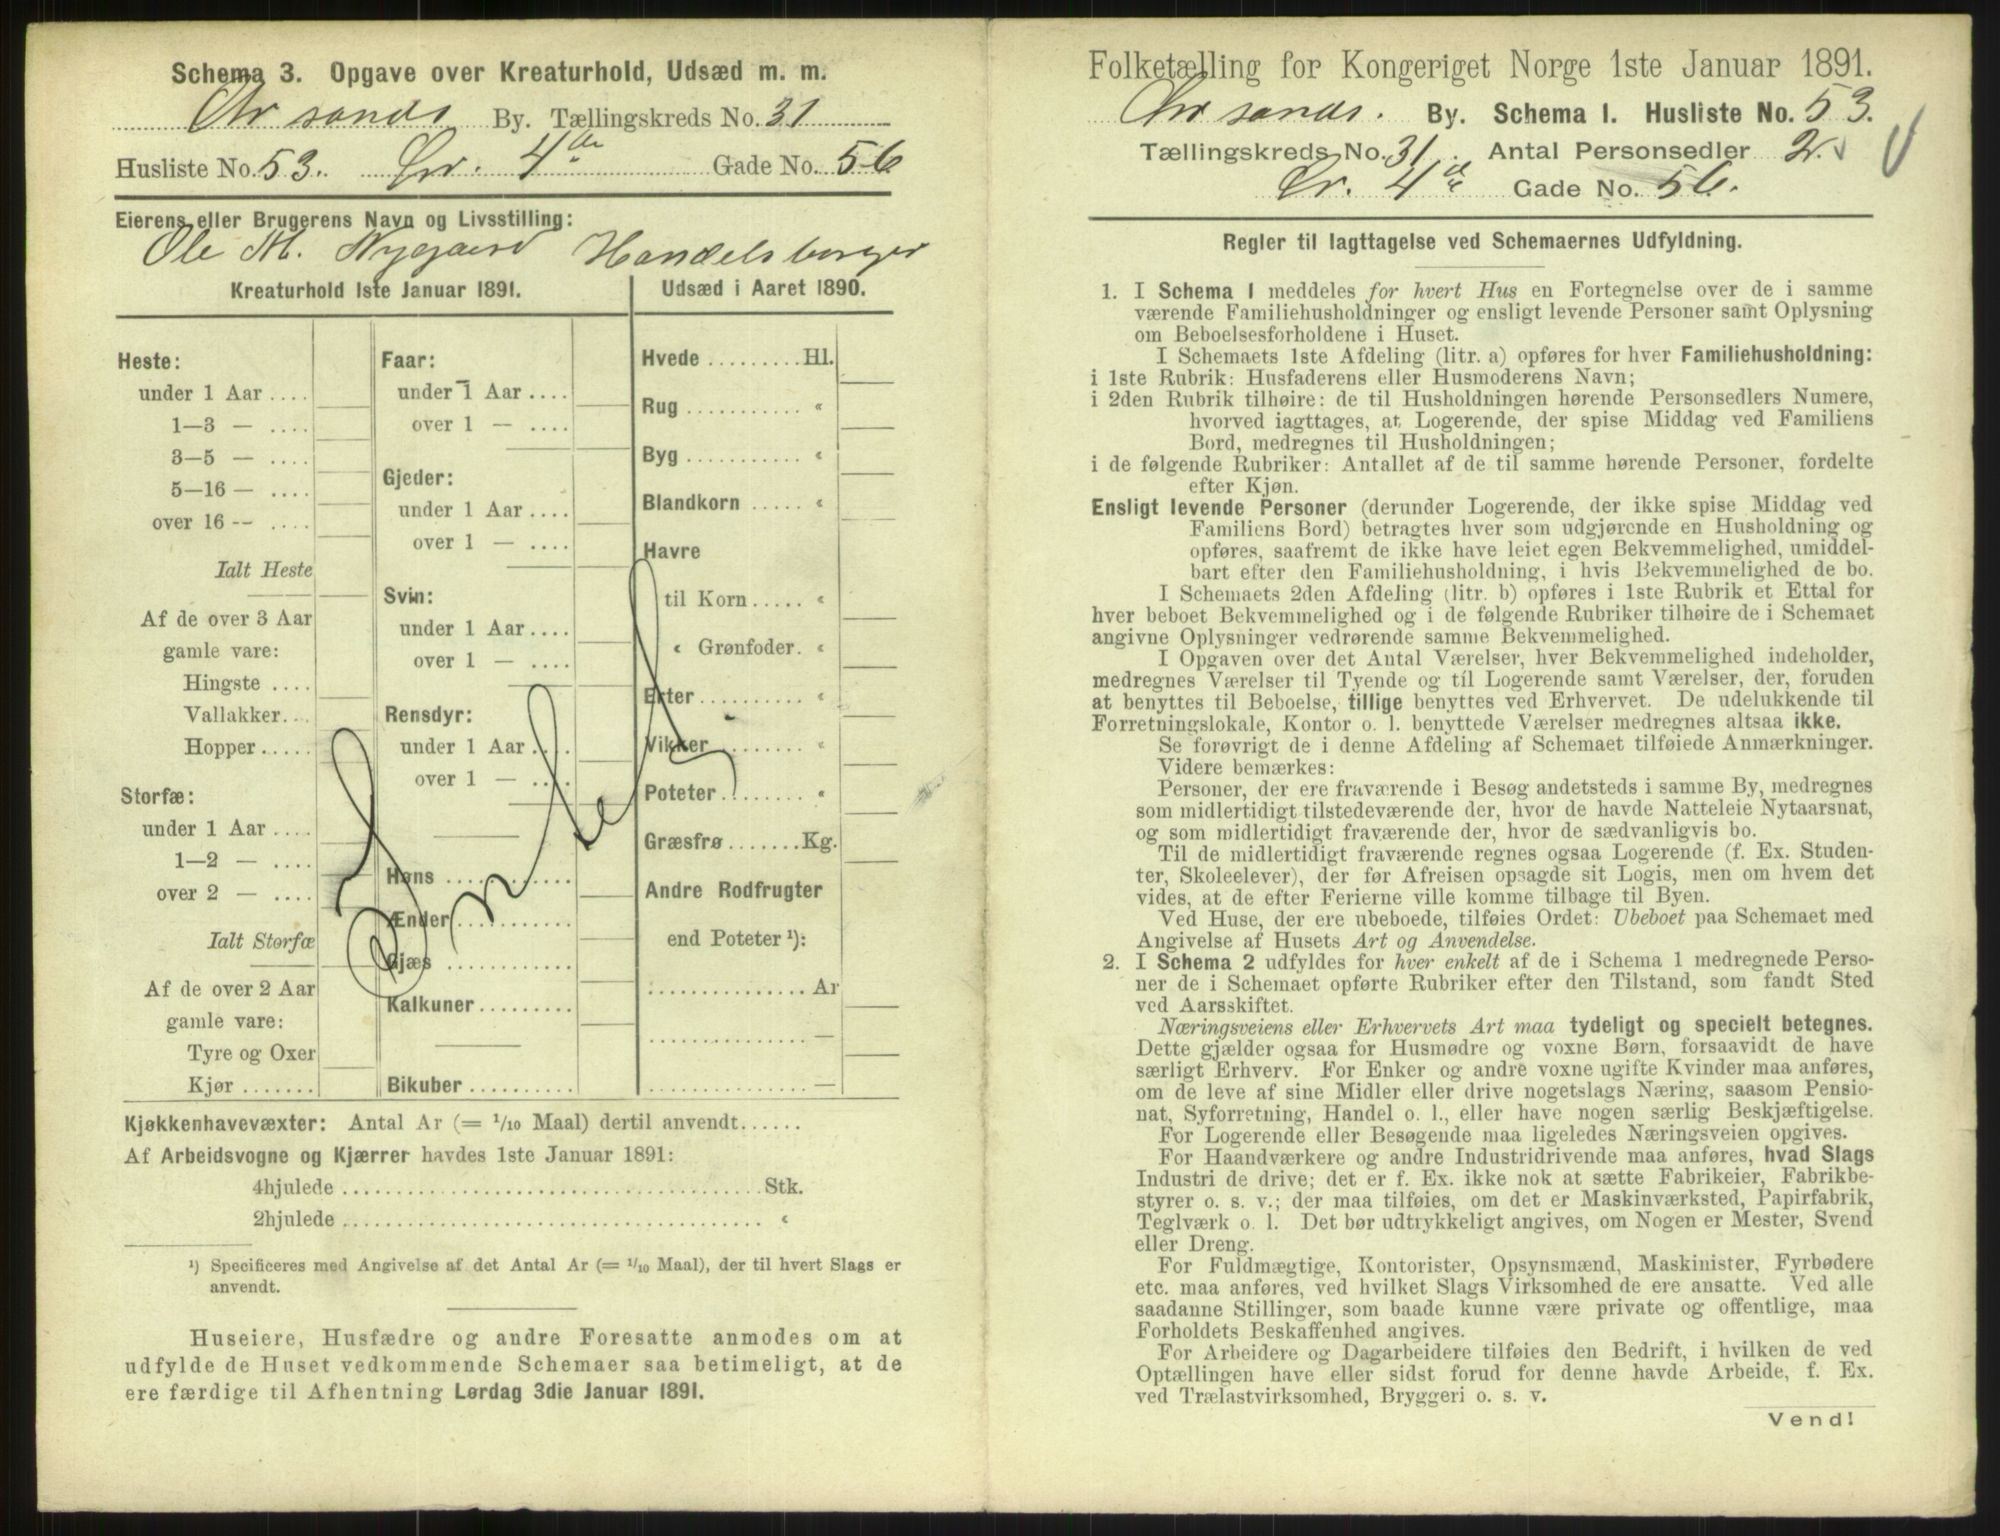 Schema 3. Opgave over Kreaturhold, Udsæd m. m.
Chr sands By. Tællingskreds No. 31
Husliste No. 53. Dr. 4de Gade No. 56
Eierens eller Brugerens Navn og Livsstilling:
Ole M. Nygaard Handelsborger
Kreaturhold 1ste Januar 1891.
Heste:
under 1 Aar ....
1—3 — ....
3—5 — ....
5—16 — ....
over 16 -- ....
Ialt Heste
Af de over 3 Aar
gamle vare:
Hingste ....
Vallakker...
Hopper .....
Storfæ:
under 1 Aar ....
1—2 — ....
over 2 — ....
Ialt Storfæ
Af de over 2 Aar
gamle vare:
Tyre og Oxer
Kjør .......
Faar:
under 1 Aar ....
over 1 — ....
Gjeder:
under 1 Aar ....
over 1 — ....
Svin:
under 1 Aar ....
over 1 — ....
Rensdyr:
under 1 Aar ....
over 1 — ....
Høns ..........
Ænder..........
Gjæs ..........
Kalkuner.........
Bikuber ..........
Udsæd i Aaret 1890.
Hvede .........Hl.
Rug ........... «
Byg ........... «
Blandkorn ..... «
Havre
til Korn..... «
« Grønfoder. «
Erter.......... «
Vikker......... «
Poteter........ «
Græsfrø .......Kg.
Andre Rodfrugter
end Poteter ¹):
...............Ar
...............—
...............—
Kjøkkenhavevæxter: Antal Ar (= 1/10 Maal) dertil anvendt......
Af Arbeidsvogne og Kjærrer havdes 1ste Januar 1891:
4hjulede ........................................Stk.
2hjulede ........................................ «
¹) Specificeres med Angivelse af det Antal Ar (= 1/10 Maal), der til hvert Slags er
anvendt.
Huseiere, Husfædre og andre Foresatte anmodes om at
udfylde de Huset vedkommende Schemaer saa betimeligt, at de
ere færdige til Afhentning Lørdag 3die Januar 1891.
Folketælling for Kongeriget Norge 1ste Januar 1891.
Chr sands. By. Schema I. Husliste No. 53.
Tællingskreds No. 31. Antal Personsedler 2.
Dr. 4de Gade No. 56.
Regler til Iagttagelse ved Schemaernes Udfyldning.
1. I Schema I meddeles for hvert Hus en Fortegnelse over de i samme
værende Familiehusholdninger og ensligt levende Personer samt Oplysning
om Beboelsesforholdene i Huset.
I Schemaets 1ste Afdeling (litr. a) opføres for hver Familiehusholdning:
i 1ste Rubrik: Husfaderens eller Husmoderens Navn;
i 2den Rubrik tilhøire: de til Husholdningen hørende Personsedlers Numere,
hvorved iagttages, at Logerende, der spise Middag ved Familiens
Bord, medregnes til Husholdningen;
i de følgende Rubriker: Antallet af de til samme hørende Personer, fordelte
efter Kjøn.
Ensligt levende Personer (derunder Logerende, der ikke spise Middag ved
Familiens Bord) betragtes hver som udgjørende en Husholdning og
opføres, saafremt de ikke have leiet egen Bekvemmelighed, umiddel-
bart efter den Familiehusholdning, i hvis Bekvemmelighed de bo.
I Schemaets 2den Afdeling (litr. b) opføres i 1ste Rubrik et Ettal for
hver beboet Bekvemmelighed og i de følgende Rubriker tilhøire de i Schemaet
angivne Oplysninger vedrørende samme Bekvemmelighed.
I Opgaven over det Antal Værelser, hver Bekvemmelighed indeholder,
medregnes Værelser til Tyende og til Logerende samt Værelser, der, foruden
at benyttes til Beboelse, tillige benyttes ved Erhvervet. De udelukkende til
Forretningslokale, Kontor o. l. benyttede Værelser medregnes altsaa ikke.
Se forøvrigt de i denne Afdeling af Schemaet tilføiede Anmærkninger.
Videre bemærkes:
Personer, der ere fraværende i Besøg andetsteds i samme By, medregnes
som midlertidigt tilstedeværende der, hvor de havde Natteleie Nytaarsnat,
og som midlertidigt fraværende der, hvor de sædvanligvis bo.
Til de midlertidigt fraværende regnes ogsaa Logerende (f. Ex. Studen-
ter, Skoleelever), der før Afreisen opsagde sit Logis, men om hvem det
vides, at de efter Ferierne ville komme tilbage til Byen.
Ved Huse, der ere ubeboede, tilføies Ordet: Ubeboet paa Schemaet med
Angivelse af Husets Art og Anvendelse.
2. I Schema 2 udfyldes for hver enkelt af de i Schema 1 medregnede Perso-
ner de i Schemaet opførte Rubriker efter den Tilstand, som fandt Sted
ved Aarsskiftet.
Næringsveiens eller Erhvervets Art maa tydeligt og specielt betegnes.
Dette gjælder ogsaa for Husmødre og voxne Børn, forsaavidt de have
særligt Erhverv. For Enker og andre voxne ugifte Kvinder maa anføres,
om de leve af sine Midler eller drive nogetslags Næring, saasom Pensio-
nat, Syforretning, Handel o. l., eller have nogen særlig Beskjæftigelse.
For Logerende eller Besøgende maa ligeledes Næringsveien opgives.
For Haandværkere og andre Industridrivende maa anføres, hvad Slags
Industri de drive; det er f. Ex. ikke nok at sætte Fabrikeier, Fabrikbe-
styrer o. s. v.; der maa tilføies, om det er Maskinværksted, Papirfabrik,
Teglværk o. l. Det bør udtrykkeligt angives, om Nogen er Mester, Svend
eller Dreng.
For Fuldmægtige, Kontorister, Opsynsmænd, Maskinister, Fyrbødere
etc. maa anføres, ved hvilket Slags Virksomhed de ere ansatte. Ved alle
saadanne Stillinger, som baade kunne være private og offentlige, maa
Forholdets Beskaffenhed angives.
For Arbeidere og Dagarbeidere tilføies den Bedrift, i hvilken de ved
Optællingen have eller sidst forud for denne havde Arbeide, f. Ex.
ved Trælastvirksomhed, Bryggeri o. s. v.
Vend!